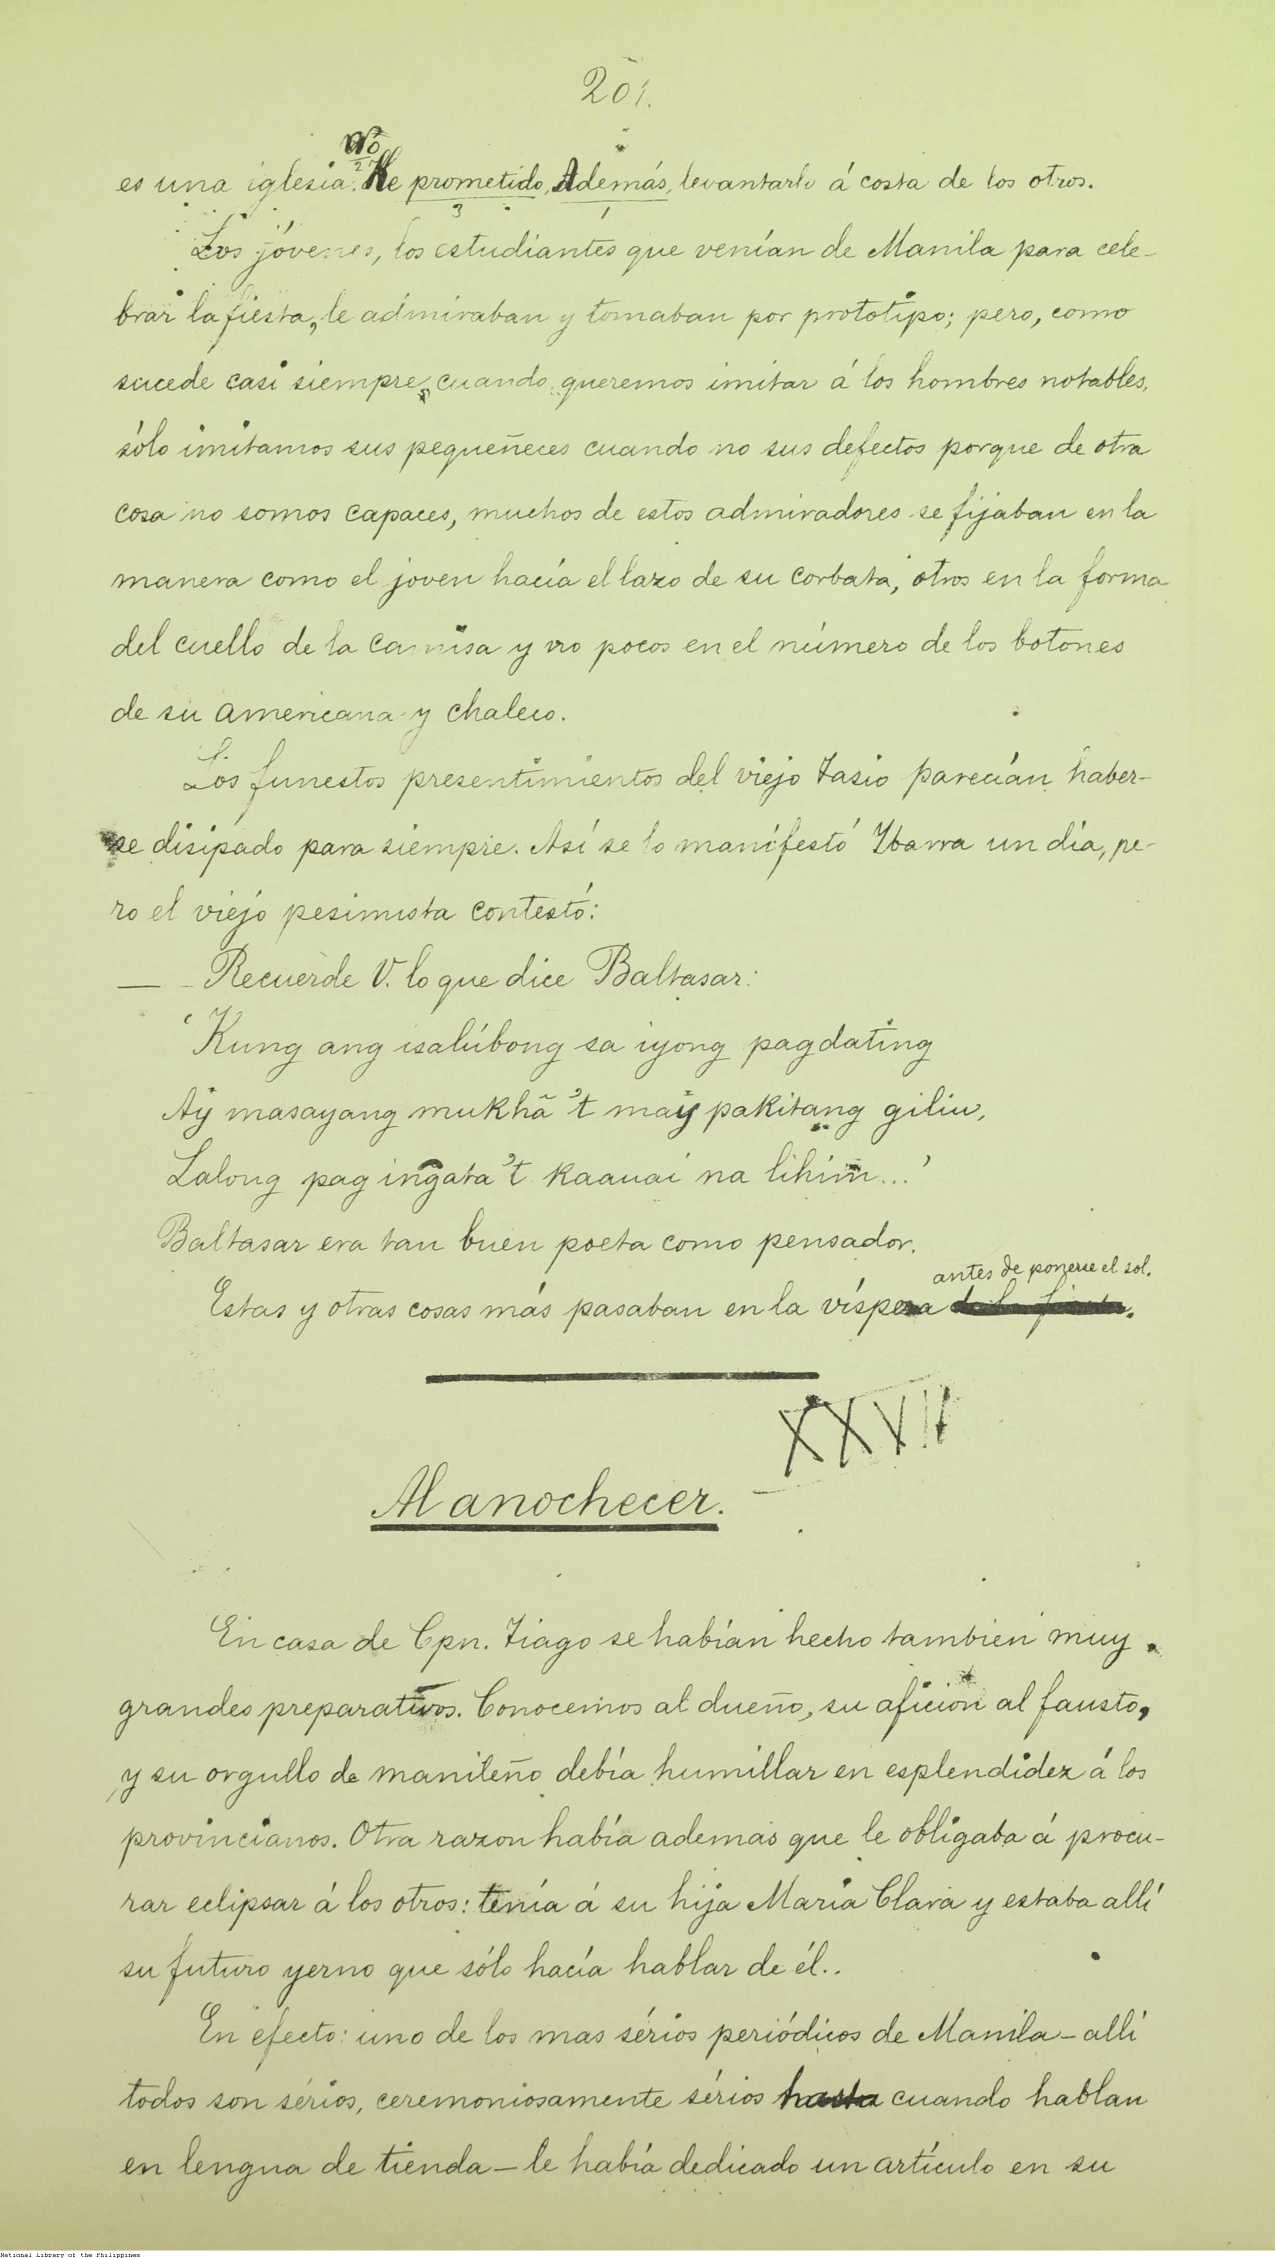 201.
No
2
es una iglesia. He prometido, Además, levantarlo á costa de los otros.
3 1
Los jóvenes, los estudiantes que venían de Manila para cele-
brar la fiesta, le admiraban y tomaban por prototipo; pero, como
sucede casi siempre, cuando queremos imitar á los hombres notables,
sólo imitamos sus pequeñeces cuando no sus defectos porque de otra
cosa no somos capaces, muchos de estos admiradores se fijaban en la
manera como el joven hacía el lazo de su corbata, otros en la forma
del cuello de la camisa y no pocos en el número de los botones
de su americana y chaleco.
Los funestos presentimientos del viejo Tasio parecían haber-
se disipado para siempre. Así se lo manifestó Ybarra un día, pe-
ro el viejo pesimista contestó:
— Recuerde V. lo que dice Baltasar:
‘Kung ang isalúbong sa iyong pagdating
Ay masayang mukhã ’t may pakitang giliu,
Lalong pag ingata ’t kaauai na lihim...’
Baltasar era tan buen poeta como pensador.
antes de ponerse el sol.
Estas y otras cosas más pasaban en la víspera de la fiesta.
XXVII
Al anochecer.
En casa de Cpn. Tiago se habían hecho también muy
grandes preparativos. Conocemos al dueño, su afición al fausto,
y su orgullo de manileño debía humillar en esplendidez á los
provincianos. Otra razon había ademas que le obligaba á procu-
rar eclipsar á los otros: tenía á su hija María Clara y estaba allí
su futuro yerno que sólo hacía hablar de él..
En efecto: uno de los mas sérios periódicos de Manila—allí
todos son sérios, ceremoniosamente sérios hasta cuando hablan
en lengua de tienda—le había dedicado un artículo en su
National Library of the Philippines